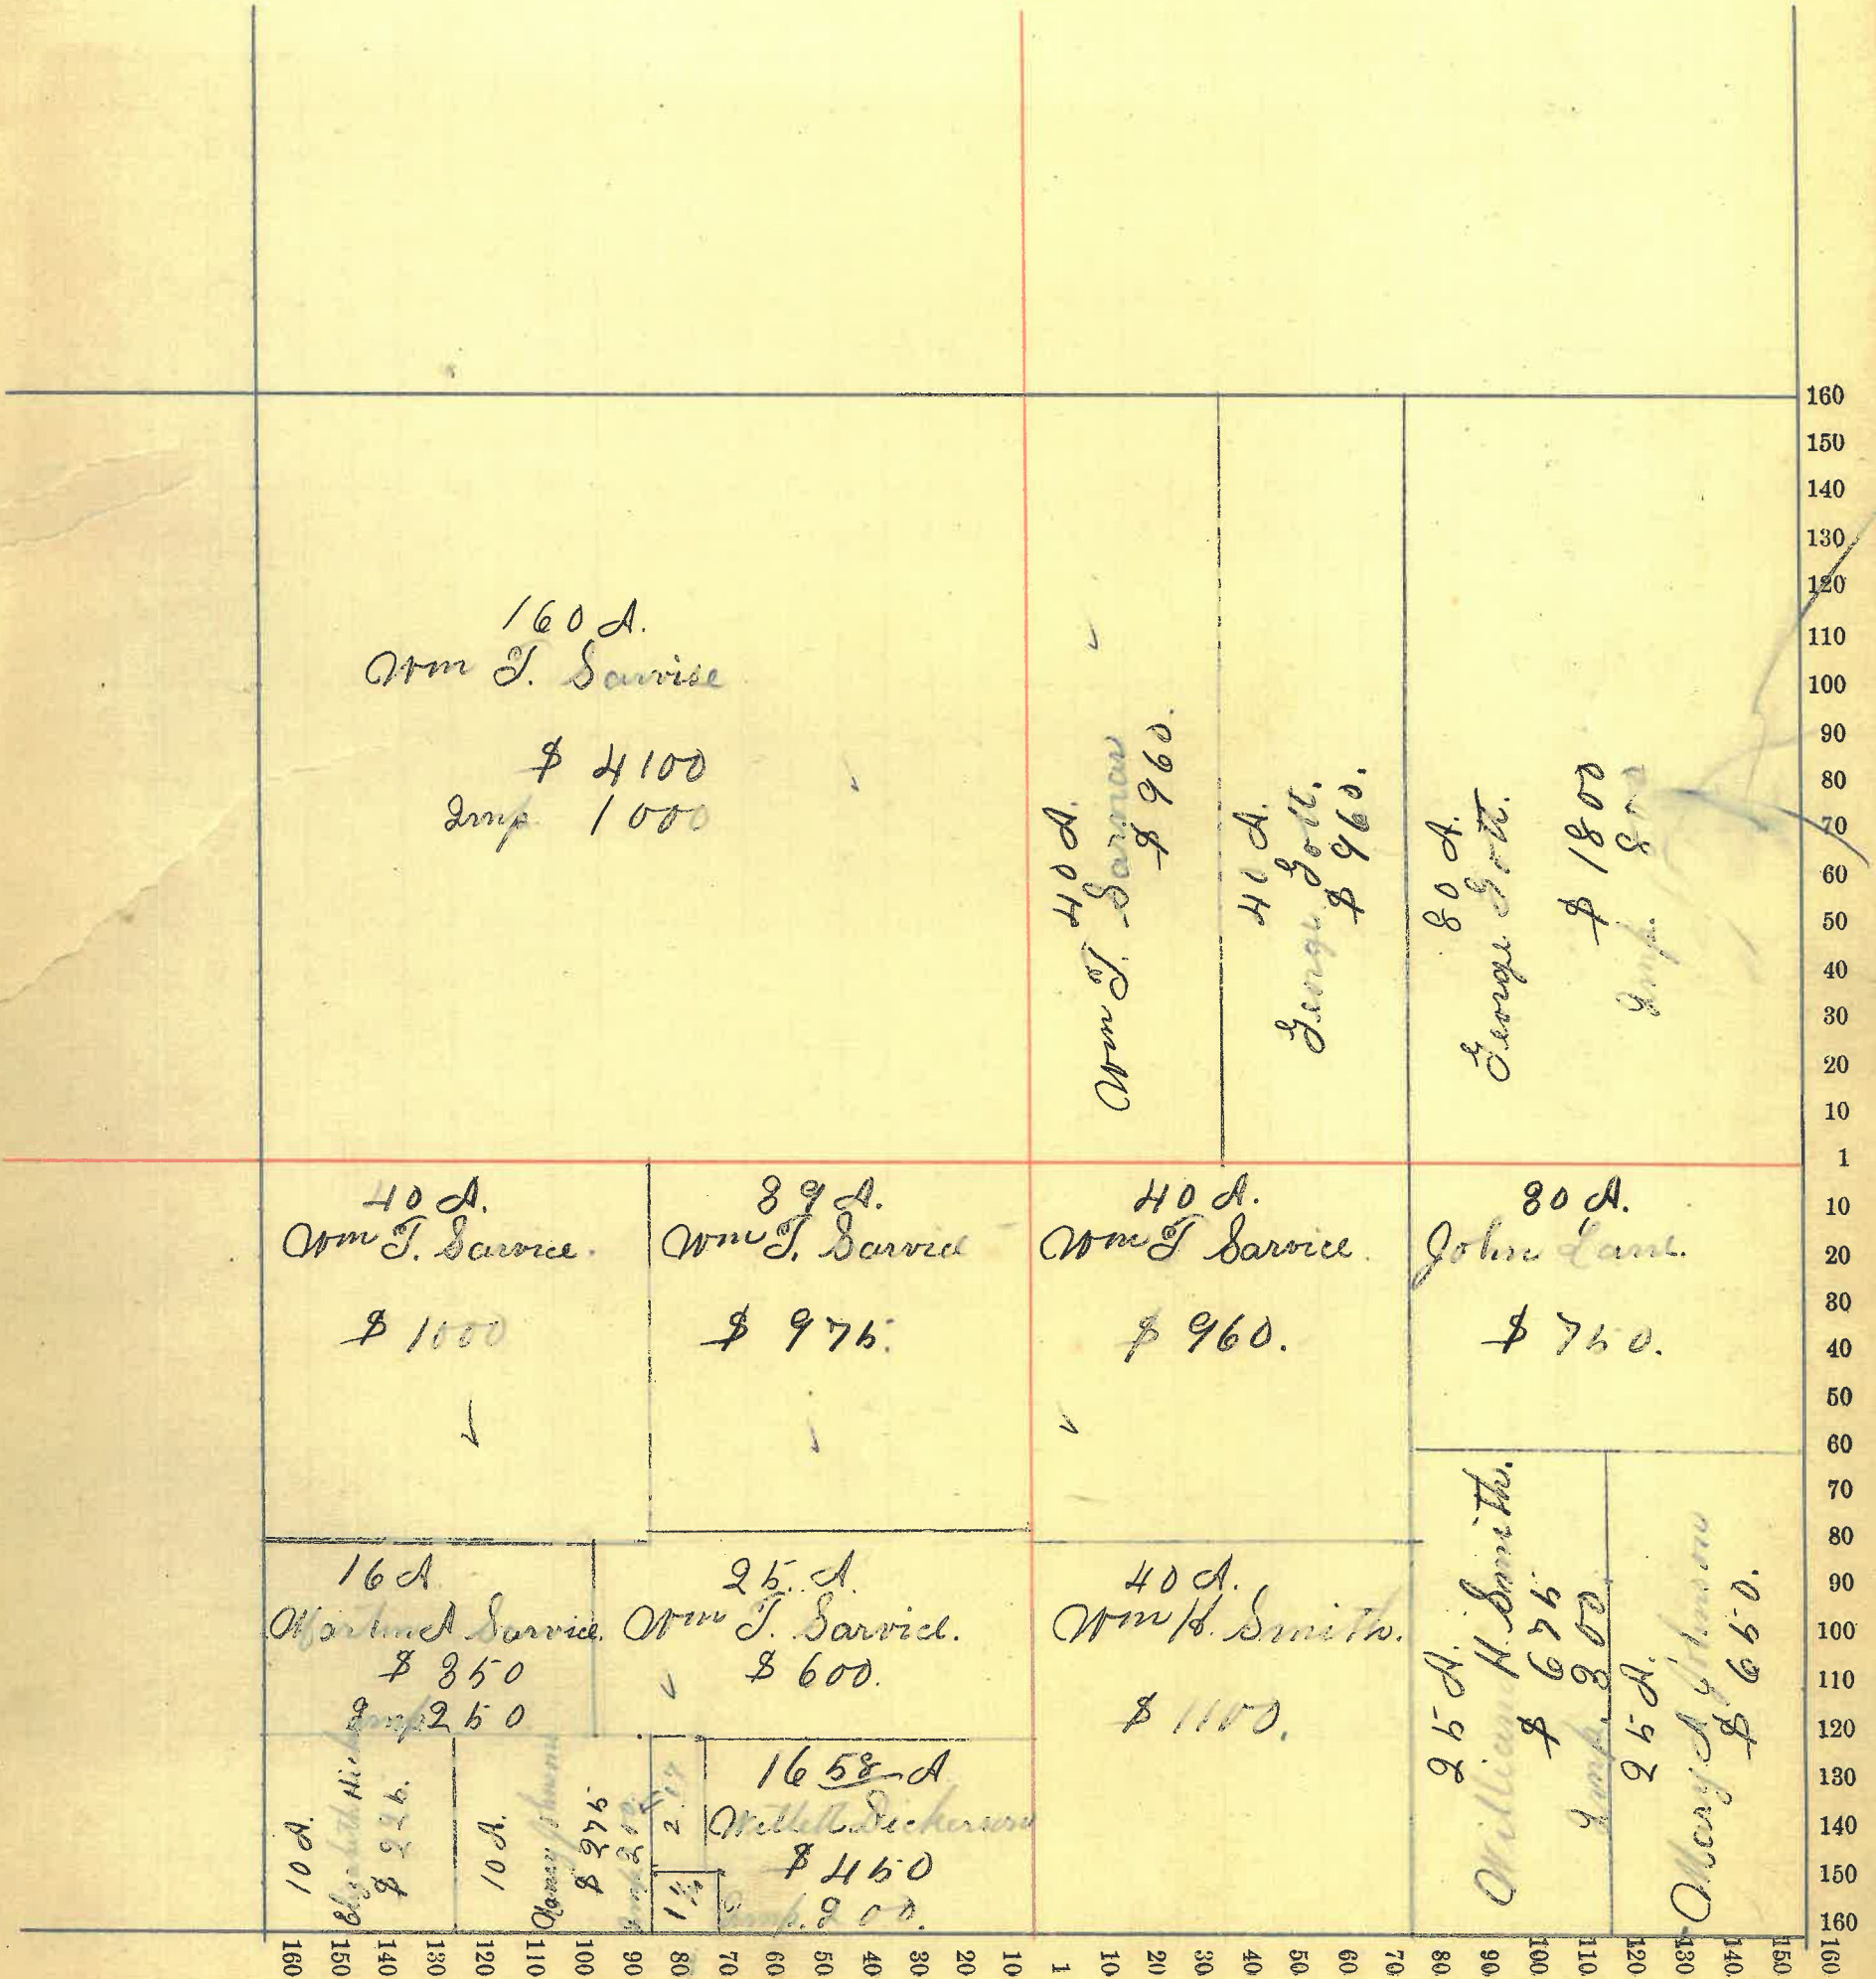 160 A.
Wm T. Sarvise
$ 4100
Imp 1000
40 A.
Wm T.
$ 960.
40 A.
George Gott.
$ 960.
80 A.
George Gott.
$ 1800
Imp. 800
40 A.
Wm T. Sarvice.
$ 1000
39 A.
Wm T. Sarvice
$ 975.
40 A.
Wm T Sarvice.
$ 960.
30 A.
John Lane.
$ 750.
16 A
Sarvice.
$ 350
Imp 250
25. A.
Wm T. Sarvice.
$ 600.
40 A.
Wm H. Smith.
$ 1100.
25 A.
William H. Smith.
$ 675
Imp. 300
25 A.
Mary A Johnson
$ 650.
10 A.
Elizabeth
$ 225.
10 A.
$ 275
Imp 200.
2
1
16 58 A
Willett Dickerson
$ 450
Imp. 200.
160
150
140
130
120
110
100
90
80
70
60
50
40
30
20
10
1
10
20
30
40
50
60
70
80
90
100
110
120
130
140
150
160
160
150
140
130
120
110
100
90
80
70
60
50
40
30
20
10
1
10
20
30
40
50
60
70
80
90
100
110
120
130
140
150
160